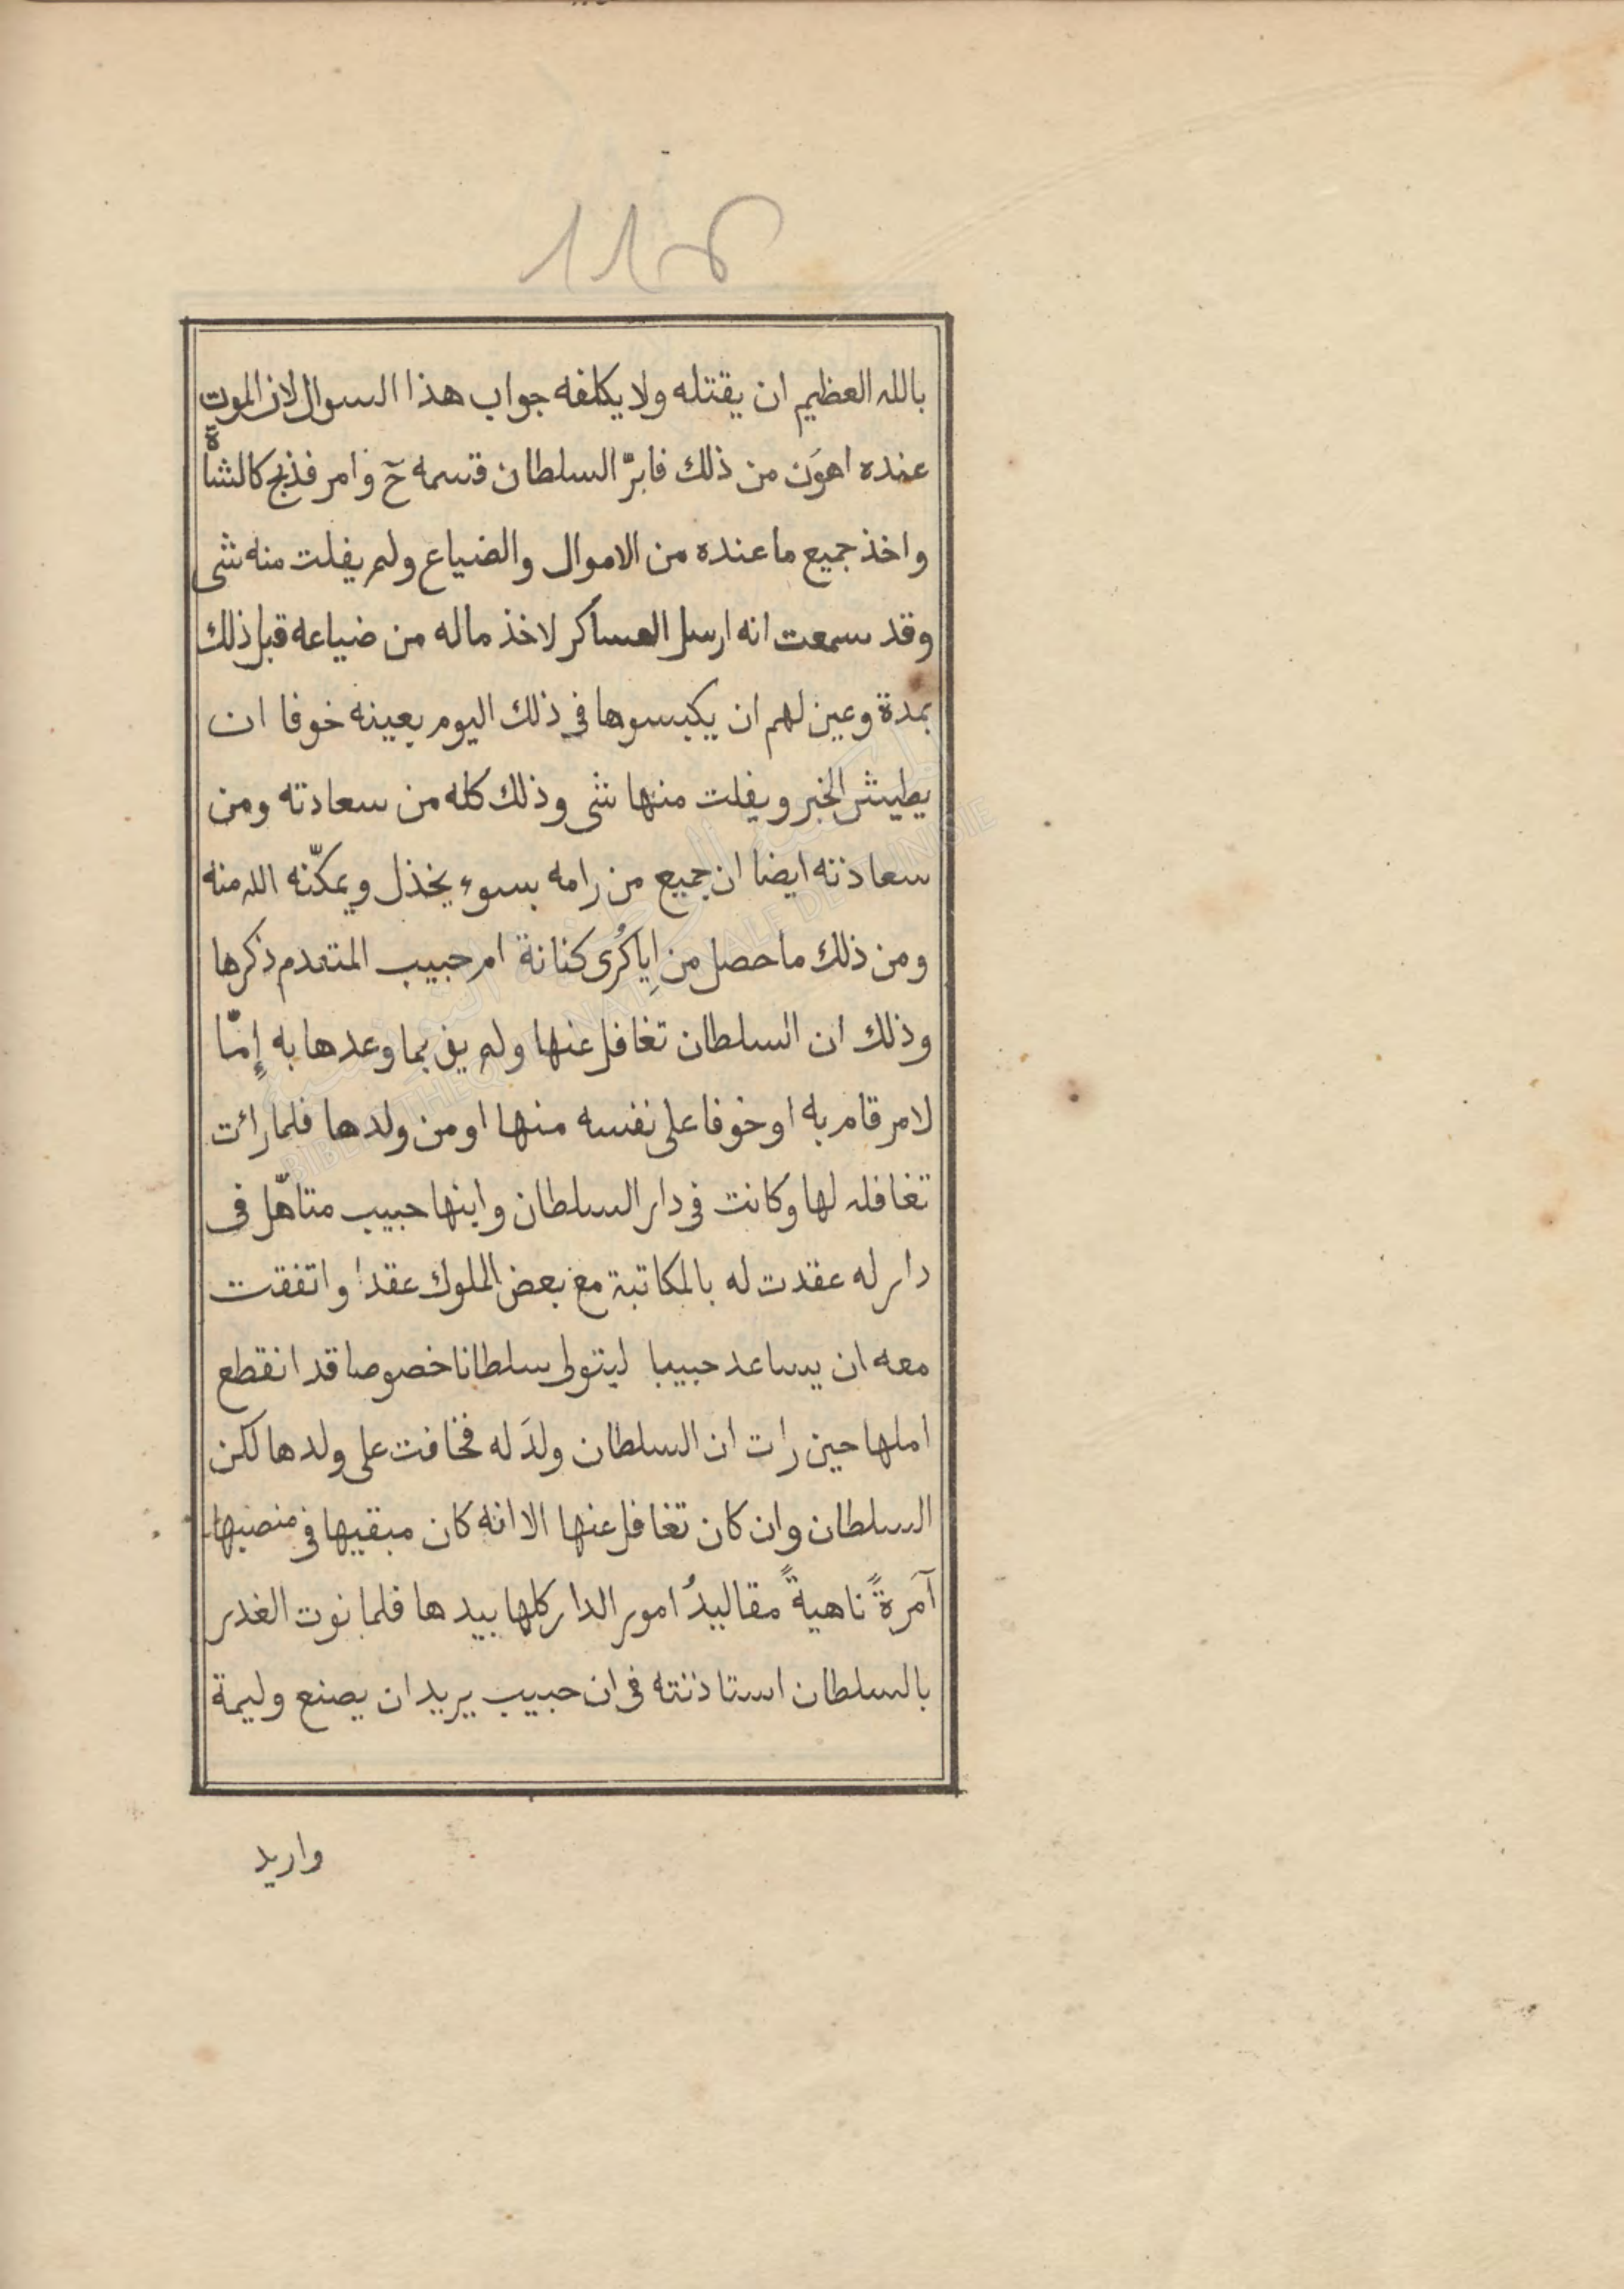 118
بالله العظيم ان يقتله ولا يكلفه جواب هذا السوال لان الموت
عنده اهوَن من ذلك فابرّ السلطان قسمه حٓ وامر فذبح كالشاة
واخذ جميع ما عنده من الاموال والضياع ولم يفلت منه شى
وقد سمعت انه ارسل العساكر لاخذ ماله من ضياعه قبل ذلك
بمدة وعين لهم ان يكبسوها فى ذلك اليوم بعينه خوفا ان
يطيش الخبر ويفلت منها شى وذلك كله من سعادته ومن
سعادته ايضا ان جميع من رامه بسوء يخذل ويمكّنه الله منه
ومن ذلك ما حصل من اِياكُرى كنانة ام حبيب المتقدم ذكرها
وذلك ان السلطان تغافل عنها ولم يف بما وعدها به إمّا
لامر قام به او خوفا على نفسه منها او من ولدها فلما رائت
تغافله لها وكانت فى دار السلطان وابنها حبيب متاهّل فى
دار له عقدت له بالمكاتبة مع بعض الملوك عقدا واتفقت
معه ان يساعد حبيبا ليتولى سلطانا خصوصا قد انقطع
املها حين رات ان السلطان ولدَ له فخافت على ولدها لكن
السلطان وان كان تغافل عنها الا انه كان مبقيها فى منصبها
آمَرةً ناهيةً مقاليدُ امور الدار كلها بيدها فلما نوت الغدر
بالسلطان استاذنته فى ان حبيب يريد ان يصنع وليمة
واريد
BIBLIOTHEQUE NATIONALE DE TUNISIE